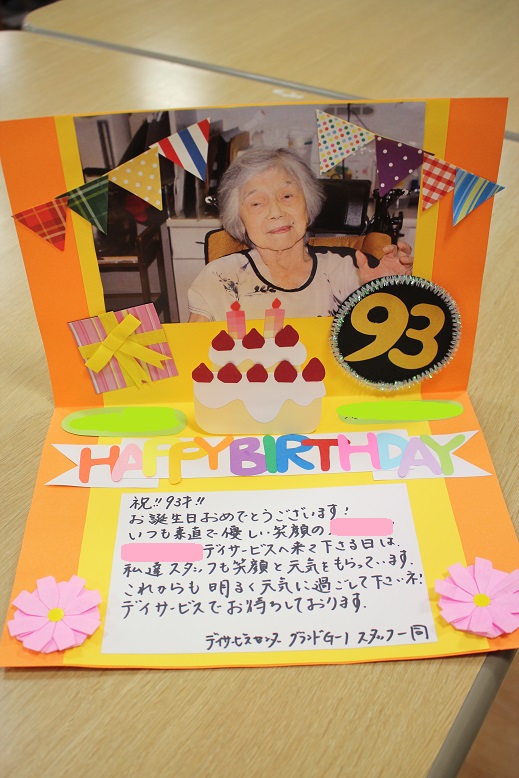 93
HAPPY BIRTHDAY
祝!!93才!!
お誕生日おめでとうございます!
いつも素直で優しい笑顔の
デイサービスへ来て下さる日は、
私達スタッフも笑顔と元気をもらっています。
これからも明るく元気に過ごして下さいネ!
デイサービスでお待ちしております。
デイサービスセンター グランドG-1 スタッフ一同